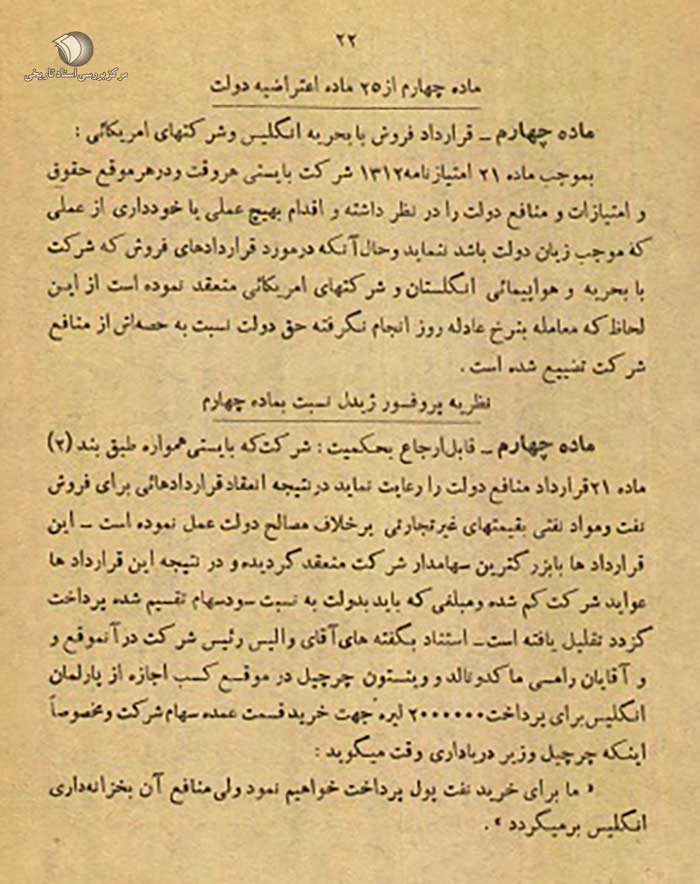 ۲۲
مرکز بررسی اسناد تاریخی
ماده چهارم از ۲۵ ماده اعتراضیه دولت
ماده چهارم ـ قرارداد فروش با بحریه انگلیس وشرکتهای امریکائی :
بموجب ماده ۲۱ امتیازنامه ۱۳۱۲ شرکت بایستی هروقت ودرهرموقع حقوق
و امتیازات و منافع دولت را در نظر داشته و اقدام بهیچ عملی یا خودداری از عملی
که موجب زیان دولت باشد ننماید وحال‌آنکه درمورد قراردادهای فروش که شرکت
با بحریه و هواپیمائی انگلستان و شرکتهای امریکائی منعقد نموده است از این
لحاظ که معامله بنرخ عادله روز انجام نگرفته حق دولت نسبت به حصه‌اش از منافع
شرکت تضییع شده است .
نظریه پروفسور ژیدل نسبت بماده چهارم
ماده چهارم ـ قابل‌ارجاع بحکمیت : شرکت‌که بایستی‌همواره طبق بند (۲)
ماده ۲۱قرارداد منافع دولت را رعایت نماید درنتیجه انعقادقراردادهائی برای فروش
نفت ومواد نفتی بقیمتهای غیرتجارتی برخلاف مصالح دولت عمل نموده است ـ این
قرارداد ها بابزرگترین سهامدار شرکت منعقد گردیده و در نتیجه این قرارداد ها
عواید شرکت کم شده ومبلغی که باید بدولت به نسبت سودسهام تقسیم شده پرداخت
گردد تقلیل یافته است ـ استناد بگفته های‌آقای والیس رئیس شرکت در آنموقع و
و آقایان رامسی ماکدونالد و وینستون چرچیل در موقع کسب اجازه از پارلمان
انگلیس برای پرداخت ۲۰۰۰۰۰۰ لیره جهت خرید قسمت عمده سهام شرکت ومخصوصاً
اینکه چرچیل وزیر دریاداری وقت میگوید :
« ما برای خرید نفت پول پرداخت خواهیم نمود ولی‌منافع آن بخزانه‌داری
انگلیس برمیگردد » .